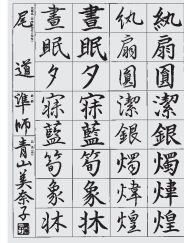 紈扇圓潔銀燭煒煌
紈扇圓潔銀燭煒煌
晝眠夕寐藍筍象牀
晝眠夕寐藍筍象牀
尾道 準師 青山美奈子